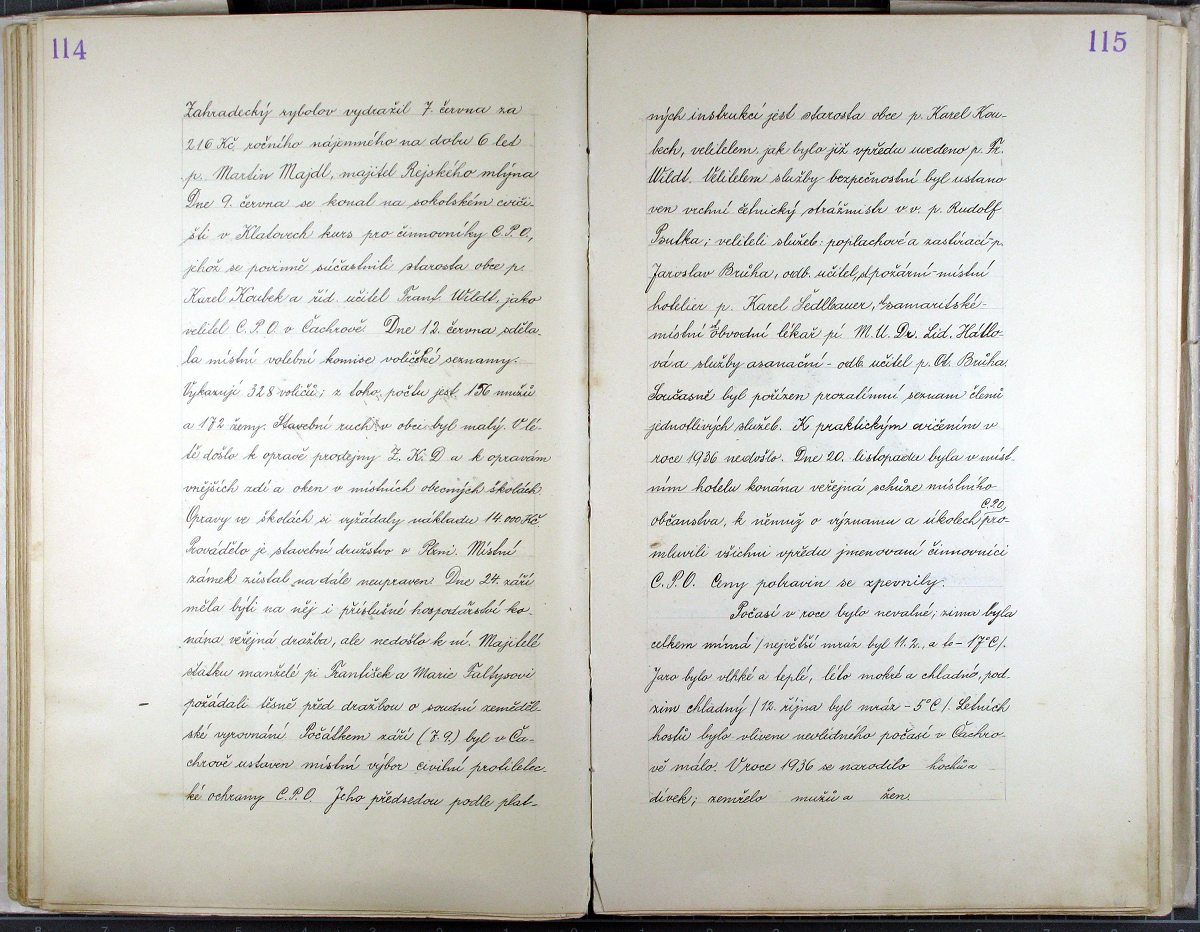 114
Zahradecký rybolov vydražil 7. června za
216 Kč ročního nájemného na dobu 6 let
p. Martin Majdl, majitel Rejského mlýna
Dne 9. června se konal na sokolském cviči-
šti v Klatovech kurs pro činnovníky C.P.O.,
jehož se povinně súčastnili starosta obce p.
Karel Koubek a říd. učitel Frant. Wildt, jako
velitel C.P.O. v Čachrově Dne 12. června sděla-
la místní volební komise voličské seznamy.
Vykazují 328 voličů; z toho počtu jest 156 mužů
a 172 ženy. Stavební ruch v obci byl malý. V lé-
tě došlo k opravě prodejny Z.K.D a k opravám
vnějších zdí a oken v místních obecných školách.
Opravy ve školách si vyžádaly nákladu 14.000 Kč
Provádělo je stavební družstvo v Plzni. Místní
zámek zůstal na dále neupraven Dne 24. září
měla býti na něj i příslušné hospodářství ko-
nána veřejná dražba, ale nedošlo k ní. Majitelé
statku manželé pí František a Marie Faltysovi
požádali těsně před dražbou o soudní zeměděl-
ské vyrovnání Počátkem září (7.9.) byl v Ča-
chrově ustaven místní výbor civilní protiletec-
ké ochrany C.P.O. Jeho předsedou podle plat-
115
ných instrukcí jest starosta obce p. Karel Kou-
bech, velitelem jak bylo již vpředu uvedeno p. Fr.
Wildt. Velitelem služby bezpečnostní byl ustano
ven vrchní četnický strážmistr v.v. p. Rudolf
Psutka; veliteli služeb: poplachové a zastírací-p.
Jaroslav Brůha, odb. učitel, požární-místní
hotelier p. Karel Sedlbauer, samaritské-
místní obvodní lékař pí M.U.Dr. Lid. Hátlo-
vá a služby asanační - odb. učitel p. Ot. Brůha.
Současně byl pořízen prozatímní seznam členů
jednotlivých služeb. K praktickým cvičením v
roce 1936 nedošlo. Dne 20. listopadu byla v míst-
ním hotelu konána veřejná schůze místního
občanstva, k němuž o významu a úkolech C.P.O. pro-
mluvili všichni vpředu jmenovaní činnovníci
C.P.O. Ceny potravin se zpevnily.
Počasí v roce bylo nevalné; zima byla
celkem mírná /největší mráz byl 11.2., a to - 17°C/.
Jaro bylo vlhké a teplé, léto mokré a chladno, pod-
zim chladný /12. října byl mráz - 5°C/. Letních
hostů bylo vlivem nevlídného počasí v Čachro-
vě málo. V roce 1936 se narodilo hochů a
dívek; zemřelo mužů a žen.